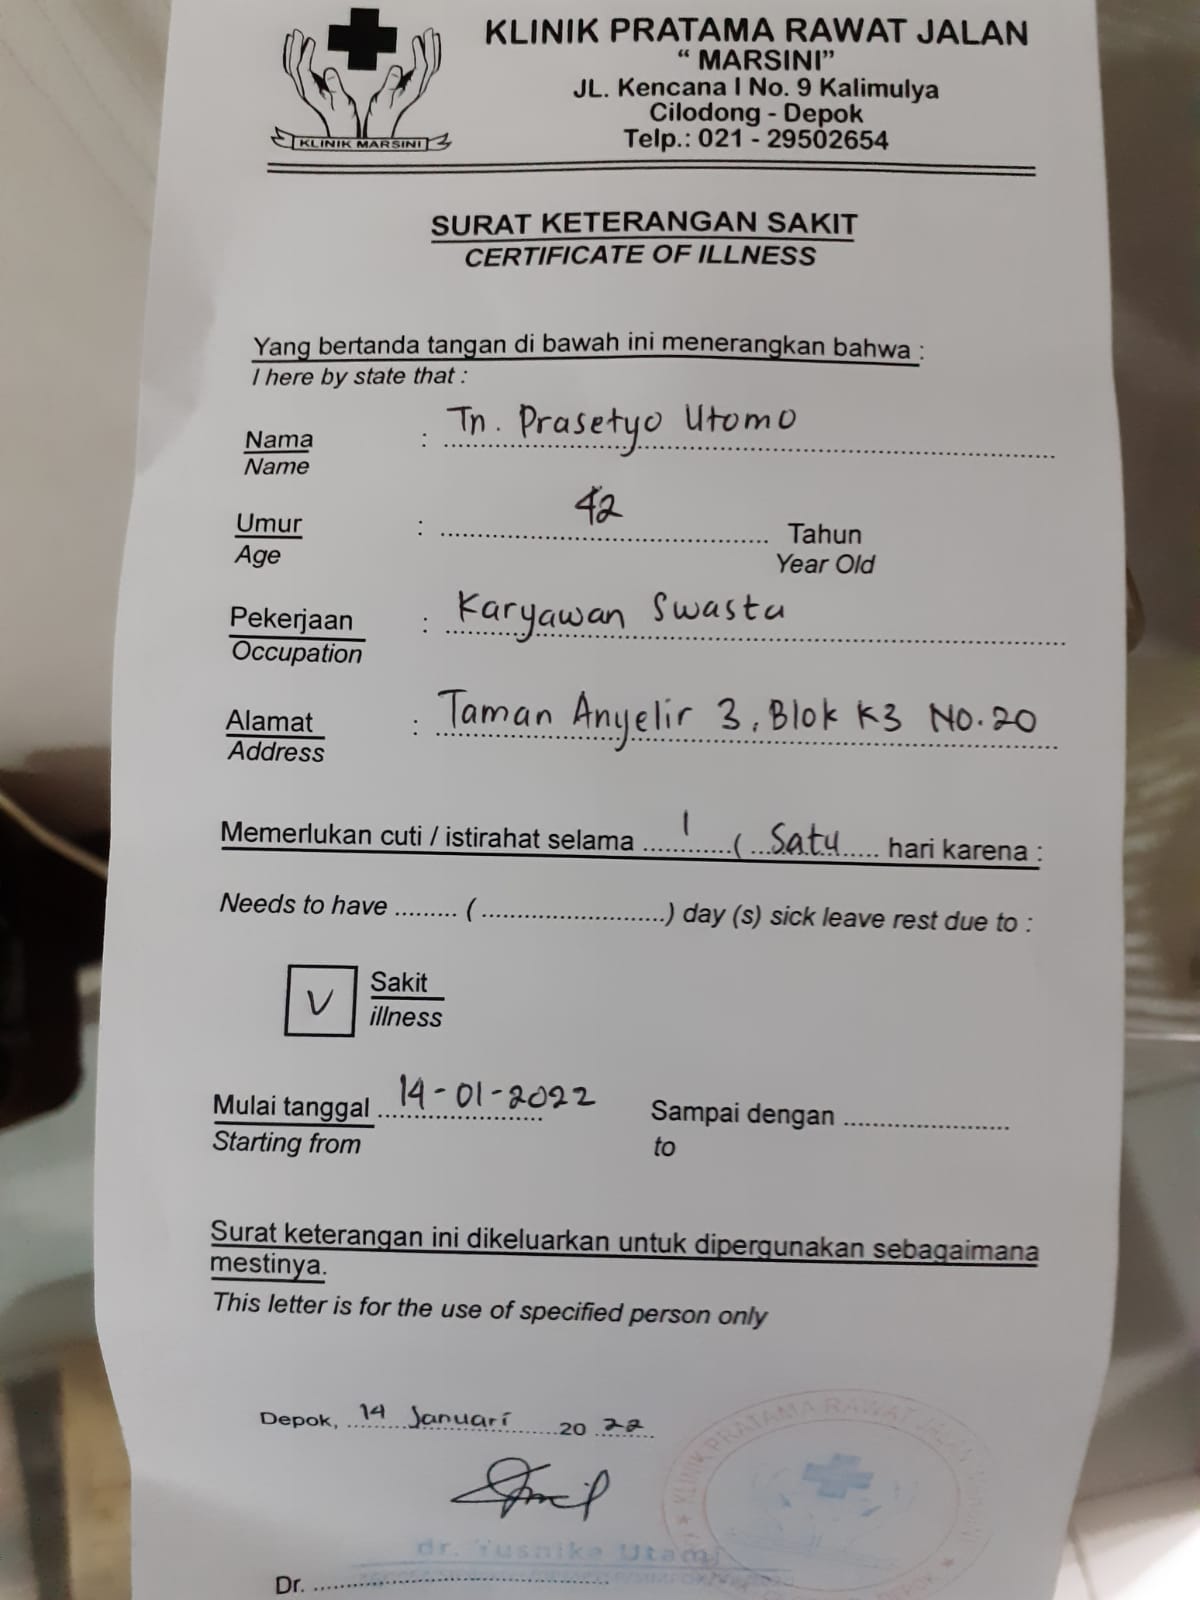 KLINIK MARSINI
KLINIK PRATAMA RAWAT JALAN
“ MARSINI”
JL. Kencana I No. 9 Kalimulya
Cilodong - Depok
Telp.: 021 - 29502654
SURAT KETERANGAN SAKIT
CERTIFICATE OF ILLNESS
Yang bertanda tangan di bawah ini menerangkan bahwa :
I here by state that :
Nama : Tn. Prasetyo Utomo
Name
Umur : 42 Tahun
Age Year Old
Pekerjaan : Karyawan Swasta
Occupation
Alamat : Taman Anyelir 3, Blok K3 No.20
Address
Memerlukan cuti / istirahat selama 1 ( Satu hari karena :
Needs to have ......... ( .........................) day (s) sick leave rest due to :
V Sakit
illness
Mulai tanggal 14-01-2022 Sampai dengan ......................
Starting from to
Surat keterangan ini dikeluarkan untuk dipergunakan sebagaimana
mestinya.
This letter is for the use of specified person only
Depok, 14 Januari 20 22
KLINIK PRATAMA RAWAT JALAN
dr. Yusnika Utami
Dr. ........................................
DEPOK